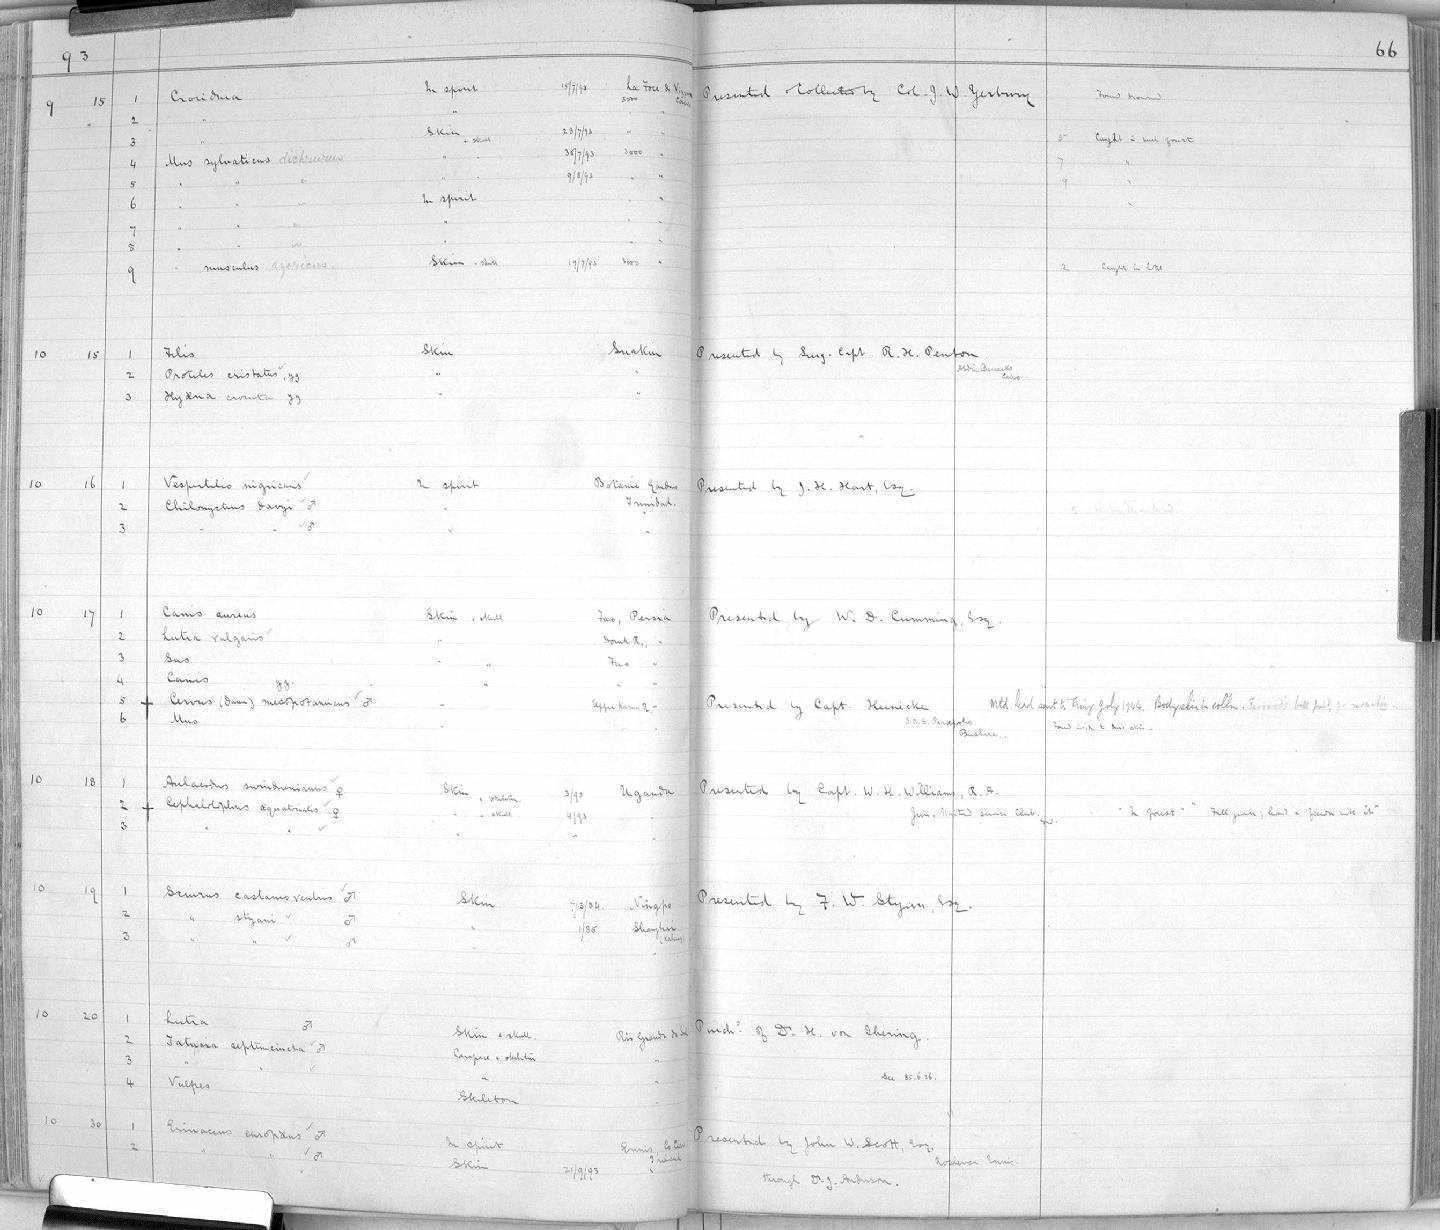 93
66
9 15 1 Crocidura In spirit 15/7/93 La Foce & Vizzavona Presented Collected by Col. J. W. Yerbury Found drowned
3000 Corsica
2 " " "
3 " Skin & skull 28/7/93 " " 5 Caught in forest
4 Mus sylvaticus dichrurus " " 30/7/93 3000 " 7 "
5 " " " " " 9/8/93 " " 9 "
6 " " " In spirit " "
7 " " " " " "
8 " " " " " "
9 " musculus azoricus. Skin & skull 19/7/93 3000 " 2 Caught in
10 15 1 Felis Skin Suakin Presented by Surg. Capt. R. H. Penton
2 Proteles cristatus yg " " Barracks Cairo
3 Hyæna crocuta yg " "
10 16 1 Vespertilio nigricans In spirit Botanic Gardens Presented by J. H. Hart, Esq.
2 Chilonycteris davyi ♂ " Trinidad.
3 " " ♂ " "
10 17 1 Canis aureus Skin & skull Fao, Persia Presented by W. D. Cumming, Esq.
2 Lutra vulgaris " R., "
3 Sus " " Fao "
4 Canis yg. " " "
5 Cervus (Dama) mesopotamicus ♂ " Upper Karun R. " Presented by Capt. Heinicke Mtd. head sent to Tring July 1944. Body skin in colln.
6 Mus " S.S. Persepolis
Bushire.
10 18 1 Aulacodus swindernianus ♀ Skin & skeleton 3/93 Uganda Presented by Capt. W. H. Williams, R. A.
2 Cephalophus æquatorialis ♀ " & skull 4/93 " Jun. United Service Club. "In forest" "
3 " " " " "
10 19 1 Sciurus castaneoventris ♂ Skin 7/3/84. Ningpo Presented by F. W. Styan, Esq.
2 " styani ♂ " 1/86 Shanghai
3 " " ♂ " "
10 20 1 Lutra ♂ Skin & skull. Rio Grande do Sul Purchd. of Dr. H. von Ihering.
2 Tatusia septemcincta ♂ Carapace & skeleton "
3 " " " " See 85.6.26.
4 Vulpes Skeleton "
10 30 1 Erinaceus europæus ♂ In spirit Ennis, Co. Clare Presented by John W. Scott, Esq.
2 " " ♂ Skin 21/9/93 Ireland Roslevan Ennis.
through Dr. J. Anderson.